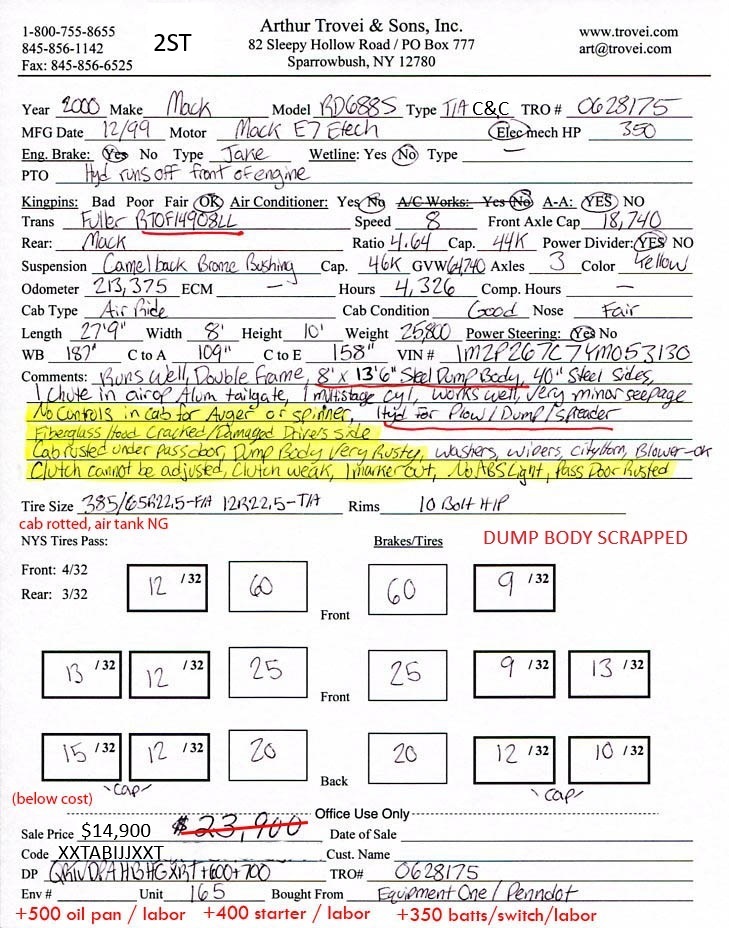 1-800-755-8655
845-856-1142
Fax: 845-856-6525
2ST
Arthur Trovei & Sons, Inc.
82 Sleepy Hollow Road / PO Box 777
Sparrowbush, NY 12780
www.trovei.com
art@trovei.com
Year 2000 Make Mack Model RD688S Type T/A C&C TRO # 0628175
MFG Date 12/99 Motor Mack E7 Etech Elec mech HP 350
Eng. Brake: Yes No Type Jake Wetline: Yes No Type —
PTO Hyd runs off front of engine
Kingpins: Bad Poor Fair OK Air Conditioner: Yes No A/C Works: Yes No A-A: YES NO
Trans Fuller RTOF14908LL Speed 8 Front Axle Cap 18,740
Rear: Mack Ratio 4.64 Cap. 44K Power Divider: YES NO
Suspension Camelback Bronze Bushing Cap. 46K GVW 64,740 Axles 3 Color Yellow
Odometer 213,375 ECM — Hours 4,326 Comp. Hours —
Cab Type Air Ride Cab Condition Good Nose Fair
Length 27'9" Width 8' Height 10' Weight 25,800 Power Steering: Yes No
WB 187" C to A 109" C to E 158" VIN # 1M2P267C74M053130
Comments: Runs Well, Double Frame, 8' x 13'6" Steel Dump Body, 40" Steel Sides,
1 chute in airop Alum tailgate, 1 multistage cyl, works well, very minor seepage
No Controls in cab for Auger or spinner, Hyd for Plow/Dump/Spreader
Fiberglass Hood Cracked/Damaged Drivers Side
Cab rusted under pass door, Dump Body Very Rusty, washers, wipers, city horn, Blower-ok
Clutch cannot be adjusted, Clutch weak, 1 marker out, No ABS Light, Pass Door Rusted
Tire Size 385/65R22.5-F/A 12R22.5-T/A Rims 10 Bolt H/P
cab rotted, air tank NG
NYS Tires Pass:
Brakes/Tires
DUMP BODY SCRAPPED
Front: 4/32
Rear: 3/32
12 /32 60 Front 60 9 /32
13 /32 12 /32 25 Front 25 9 /32 13 /32
15 /32 12 /32 20 Back 20 12 /32 10 /32
cap cap
(below cost)
Office Use Only
Sale Price $14,900 $23,900 Date of Sale
Code XXTABIJJXXT Cust. Name
DP +600+700 TRO# 0628175
Env # Unit 165 Bought From Equipment One / Penndot
+500 oil pan / labor +400 starter / labor +350 batts/switch/labor